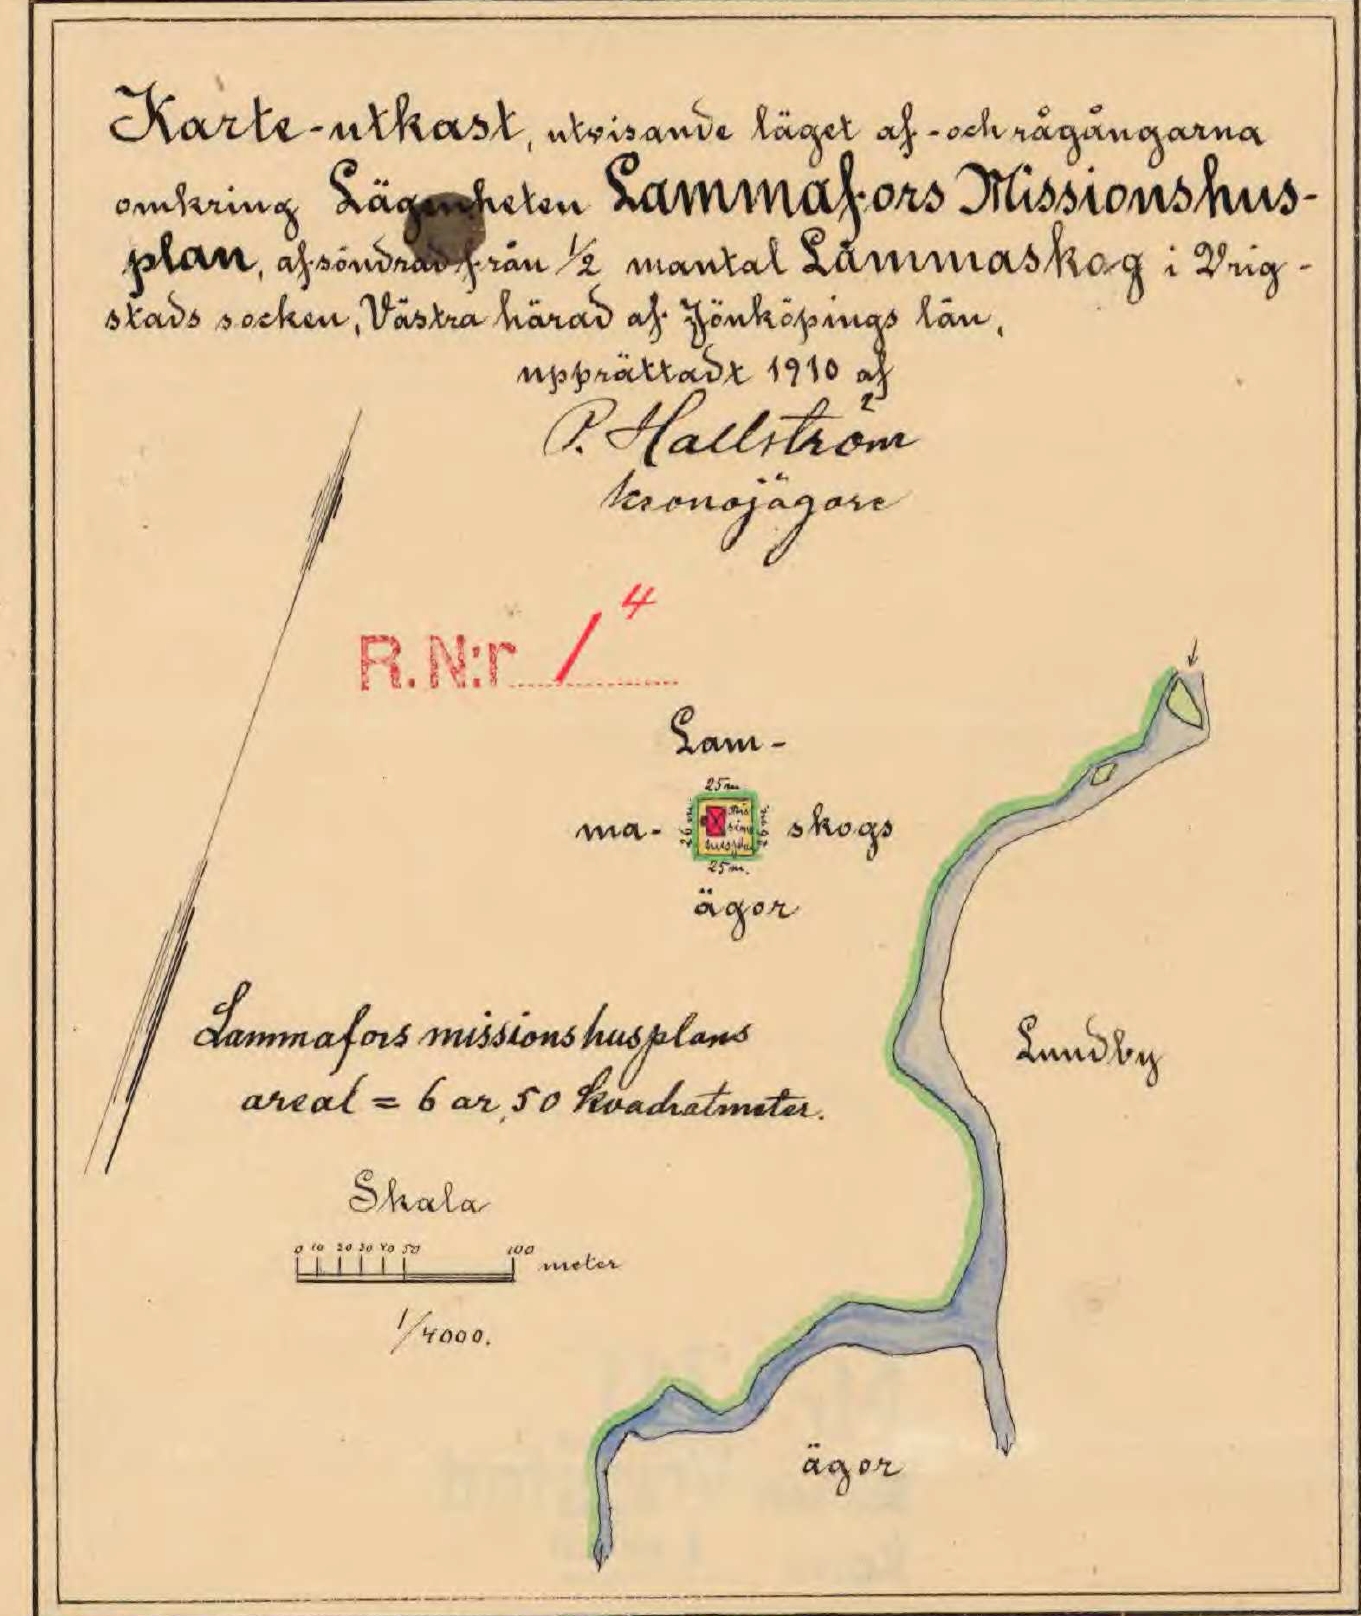 Karte-utkast, utvisande läget af- och rågångarna
omkring Lägenheten Lammafors Missionshus-
plan, afsöndrad från 1/2 mantal Lammaskog i Vrig-
stads socken, Västra härad af Jönköpings län,
upprättadt 1910 af
P. Hallström
kronojägare
R. N:r 1⁴
Lam-
25 m.
ma-
26 m.
26 m.
skogs
25 m.
ägor
Lammafors missionshusplans
areal = 6 ar, 50 kvadratmeter.
Lundby
Skala
0 10 20 30 40 50 100 meter
1/4000.
ägor